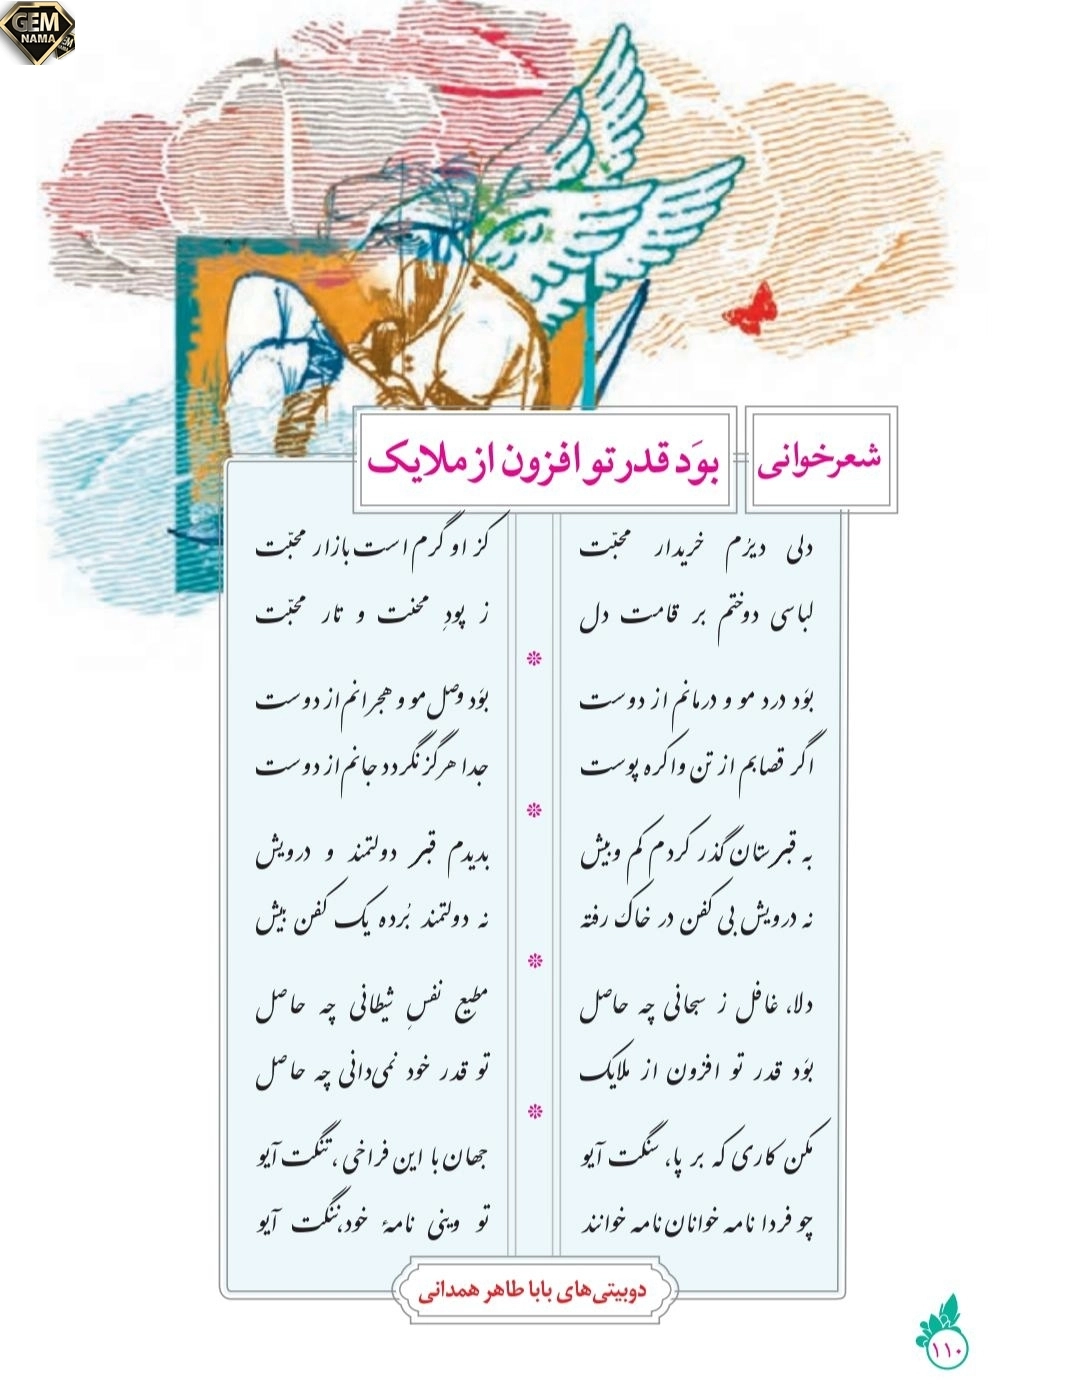 GEM
NAMA
شعرخوانی
بوَد قدر تو افزون از ملایک
دلی دیرُم خریدار محبّت
کز او گرم است بازار محبّت
لباسی دوختم بر قامت دل
ز پودِ محنت و تار محبّت
بوَد درد مو و درمانم از دوست
بوَد وصل مو و هجرانم از دوست
اگر قصابم از تن واکره پوست
جدا هرگز نگردد جانم از دوست
به قبرستان گذر کردم کم و بیش
بدیدم قبر دولتمند و درویش
نه درویش بی کفن در خاک رفته
نه دولتمند بُرده یک کفن بیش
دلا، غافل ز سبحانی چه حاصل
مطیع نفسِ شیطانی چه حاصل
بوَد قدر تو افزون از ملایک
تو قدر خود نمی‌دانی چه حاصل
مکن کاری که بر پا، سنگت آیو
جهان با این فراخی، تنگت آیو
چو فردا نامه خوانان نامه خوانند
تو وینی نامهٔ خود، ننگت آیو
دوبیتی‌های بابا طاهر همدانی
۱۱۰